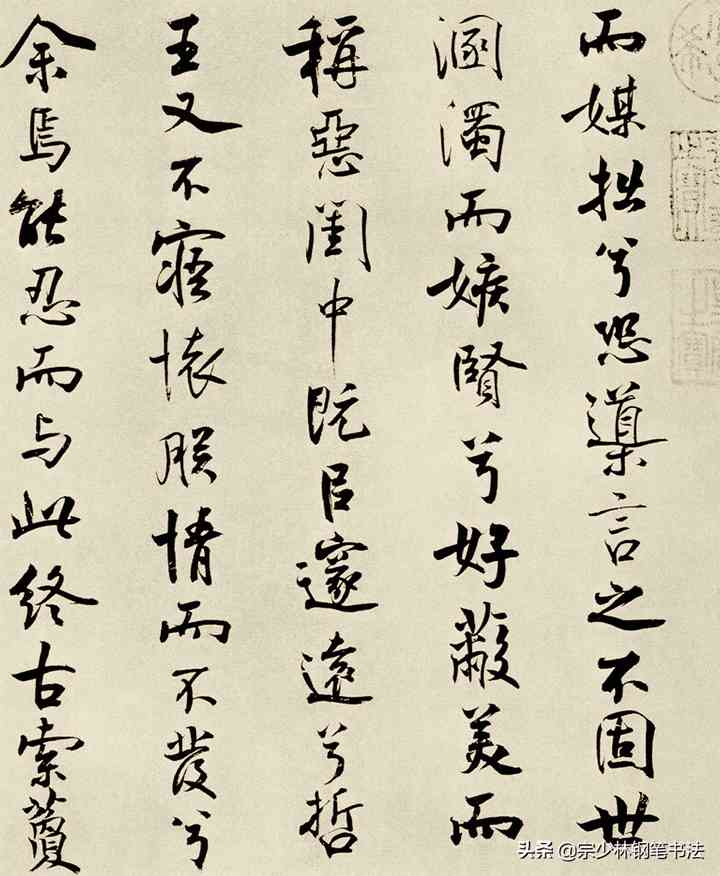 而媒拙兮恐導言之不固世
溷濁而嫉賢兮好蔽美而
稱惡閨中既㠯邃遠兮哲
王又不寤懷朕情而不發兮
余焉能忍而与此終古索藑
头条 @宗少林钢笔书法